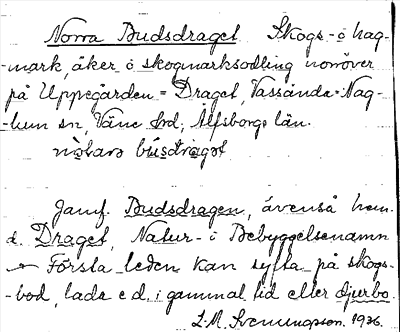 Norra Budsdraget Skogs- o hag-
-mark, åker o skogmarksodling norröver
på Uppegården = Draget, Vassända-Nag-
-lum sn, Väne hd, Älfsborgs län.
nɷ̀tarɷ bʉ́sdragət

Jämf. Budsdragen, ävenså hem.
d. Draget, Natur- i Bebyggelsenamn
Första leden kan syfta på skogs-
-bod, lada e.d. i gammal tid eller djurbo.
L.M. Svenungsson. 1936.